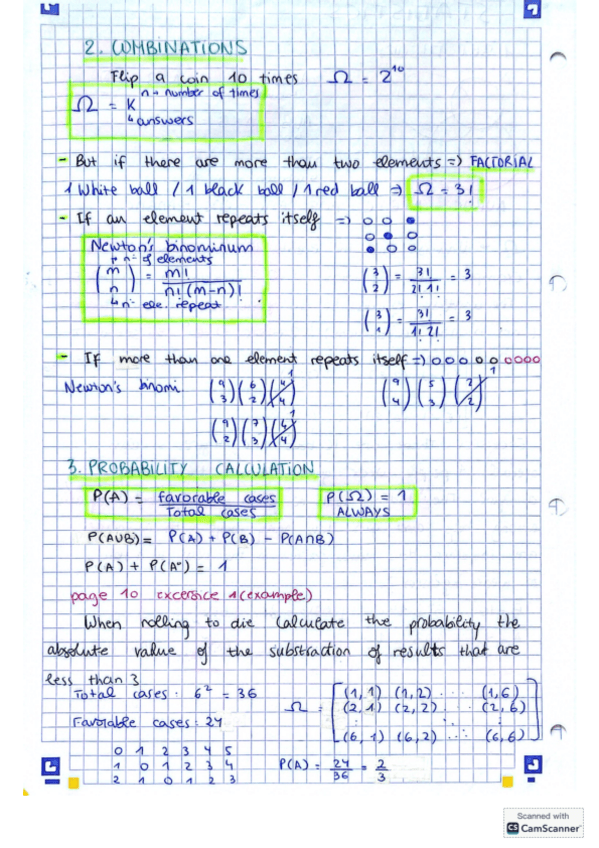 2. COMBINATIONS
Flip a coin 10 times Ω = 2^10
Ω = K^n → number of times
↳ answers
- But if there are more than two elements => FACTORIAL
1 White ball / 1 black ball / 1 red ball => Ω = 3!
- If an element repeats itself =>
Newton's binominum
(m n) = m! / n! (m-n)!
↳ nº ele. repeat
(3 2) = 3! / 2! 1! = 3
(3 1) = 3! / 1! 2! = 3
- If more than one element repeats itself =>
Newton's binomi. (9 3) (6 2) (4 4) 1 (9 4) (5 3) (2 2) 1
(9 2) (7 3) (4 4) 1
3. PROBABILITY CALCULATION
P(A) = favorable cases / Total cases P(Ω) = 1 ALWAYS
P(A∪B) = P(A) + P(B) - P(A∩B)
P(A) + P(A") = 1
page 10 excersice 1 (example)
When rolling to die calculate the probability the
absolute value of the substraction of results that are
less than 3
Total cases: 6² = 36
Favorable cases: 24
Ω = [(1,1) (1,2) ... (1,6)
(2,1) (2,2) ... (2,6)
(6,1) (6,2) ... (6,6)]
0 1 2 3 4 5
1 0 1 2 3 4
2 1 0 1 2 3
P(A) = 24/36 = 2/3
Scanned with
CS CamScanner